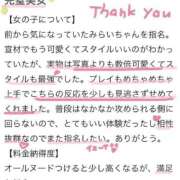 完璧美女
Thank you
【女の子について】
前から気になっていたみらいちゃんを指名。
宣材でもう可愛くてスタイルいいのがわかっ
ていたが、実物は写真よりも数倍可愛くてスタ
イルも最強でした。プレイもめちゃめちゃ
上手でこちらの反応を少しも見逃さずせてく
れました。普段はなかなか攻められる側に
回らないので、とてもいい体験だったし相性
抜群なのでまた指名したい。ありがとう。
【料金納得度】
オールヌードつけると少し高くなるが、満足